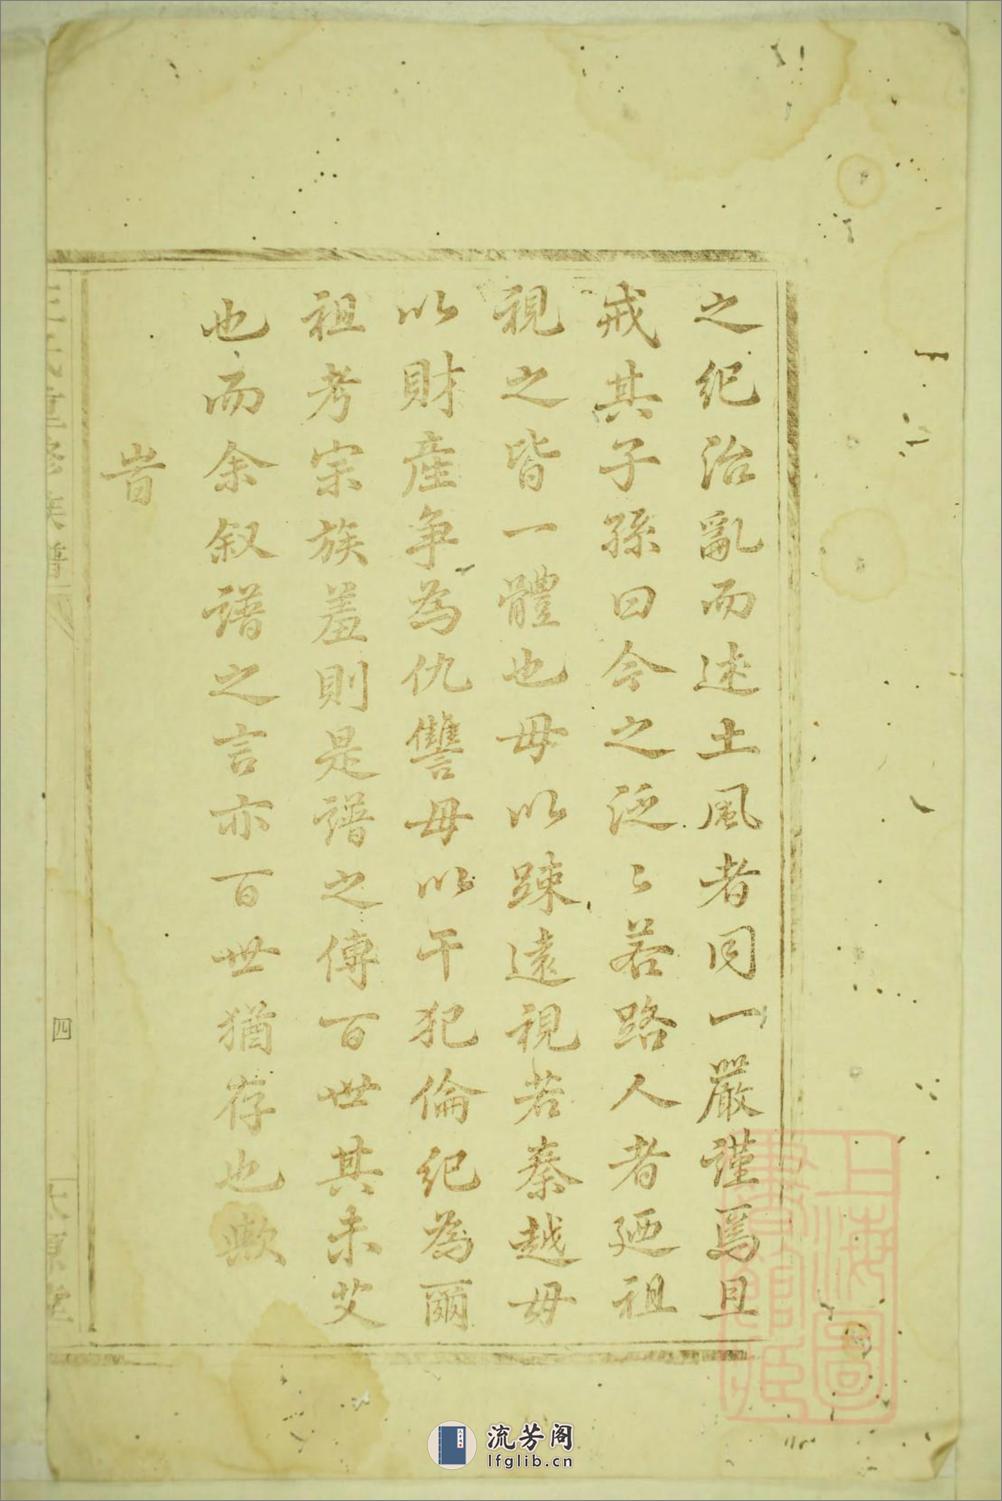 之紀治亂而述土風者同一嚴謹焉且
戒其子孫曰今之泛〻若路人者廼祖
視之皆一體也毋以踈遠視若秦越毋
以財產爭為仇讐毋以干犯倫紀為爾
祖考宗族羞則是譜之傳百世其未艾
也而余叙譜之言亦百世猶存也歟
旹
氏重修族譜
四
上海圖書館藏
流芳阁
lfglib.cn